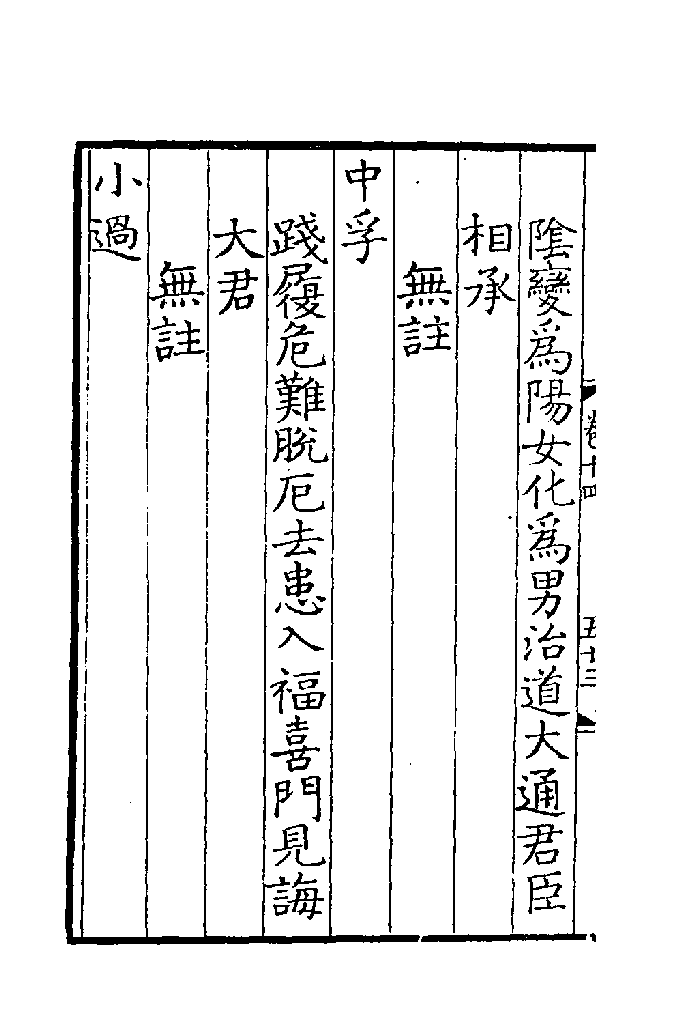 卷十四 五十三
陰變爲陽女化爲男治道大通君臣
相承
無註
中孚
踐履危難脫厄去患入福喜門見誨
大君
無註
小過